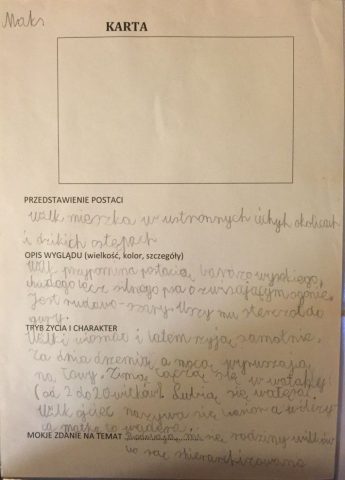 Maks
KARTA
PRZEDSTAWIENIE POSTACI
Wilk mieszka w ustronnych cichych okolicach
i dzikich ostępach
OPIS WYGLĄDU (wielkość, kolor, szczegóły)
Wilk przypomina postacią bardzo wysokiego,
chudego lecz silnego psa o zwisającym ogonie.
Jest rudawo-szary. Uszy mu sterczą do
góry.
TRYB ŻYCIA I CHARAKTER
Wilki wiosną i latem żyją samotnie.
Za dnia drzemią a nocą wyruszają
na łowy. Zimą łączą się w watahy
(od 2 do 20 wilków). Lubią się wałęsać.
Wilk ojciec nazywa się
a matka to wadera.
MOKJE ZDANIE NA TEMAT
rodziny wilków